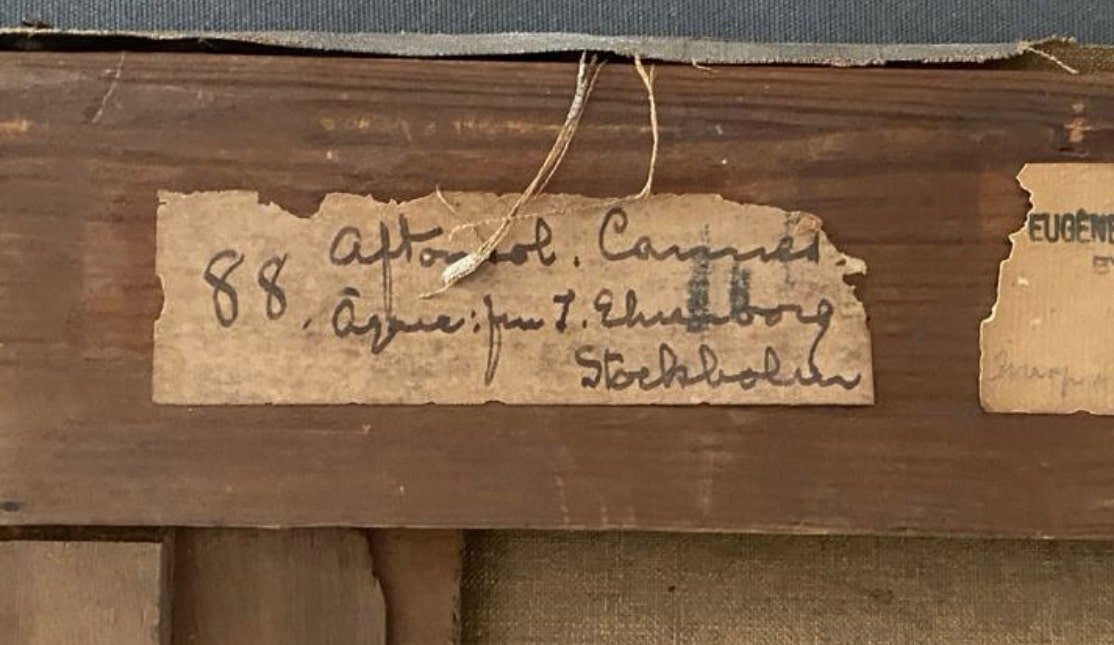 88. Aftonsol. Cannes.
Ägare: fru T. Ehrenborg
Stockholm
EUGÈNE